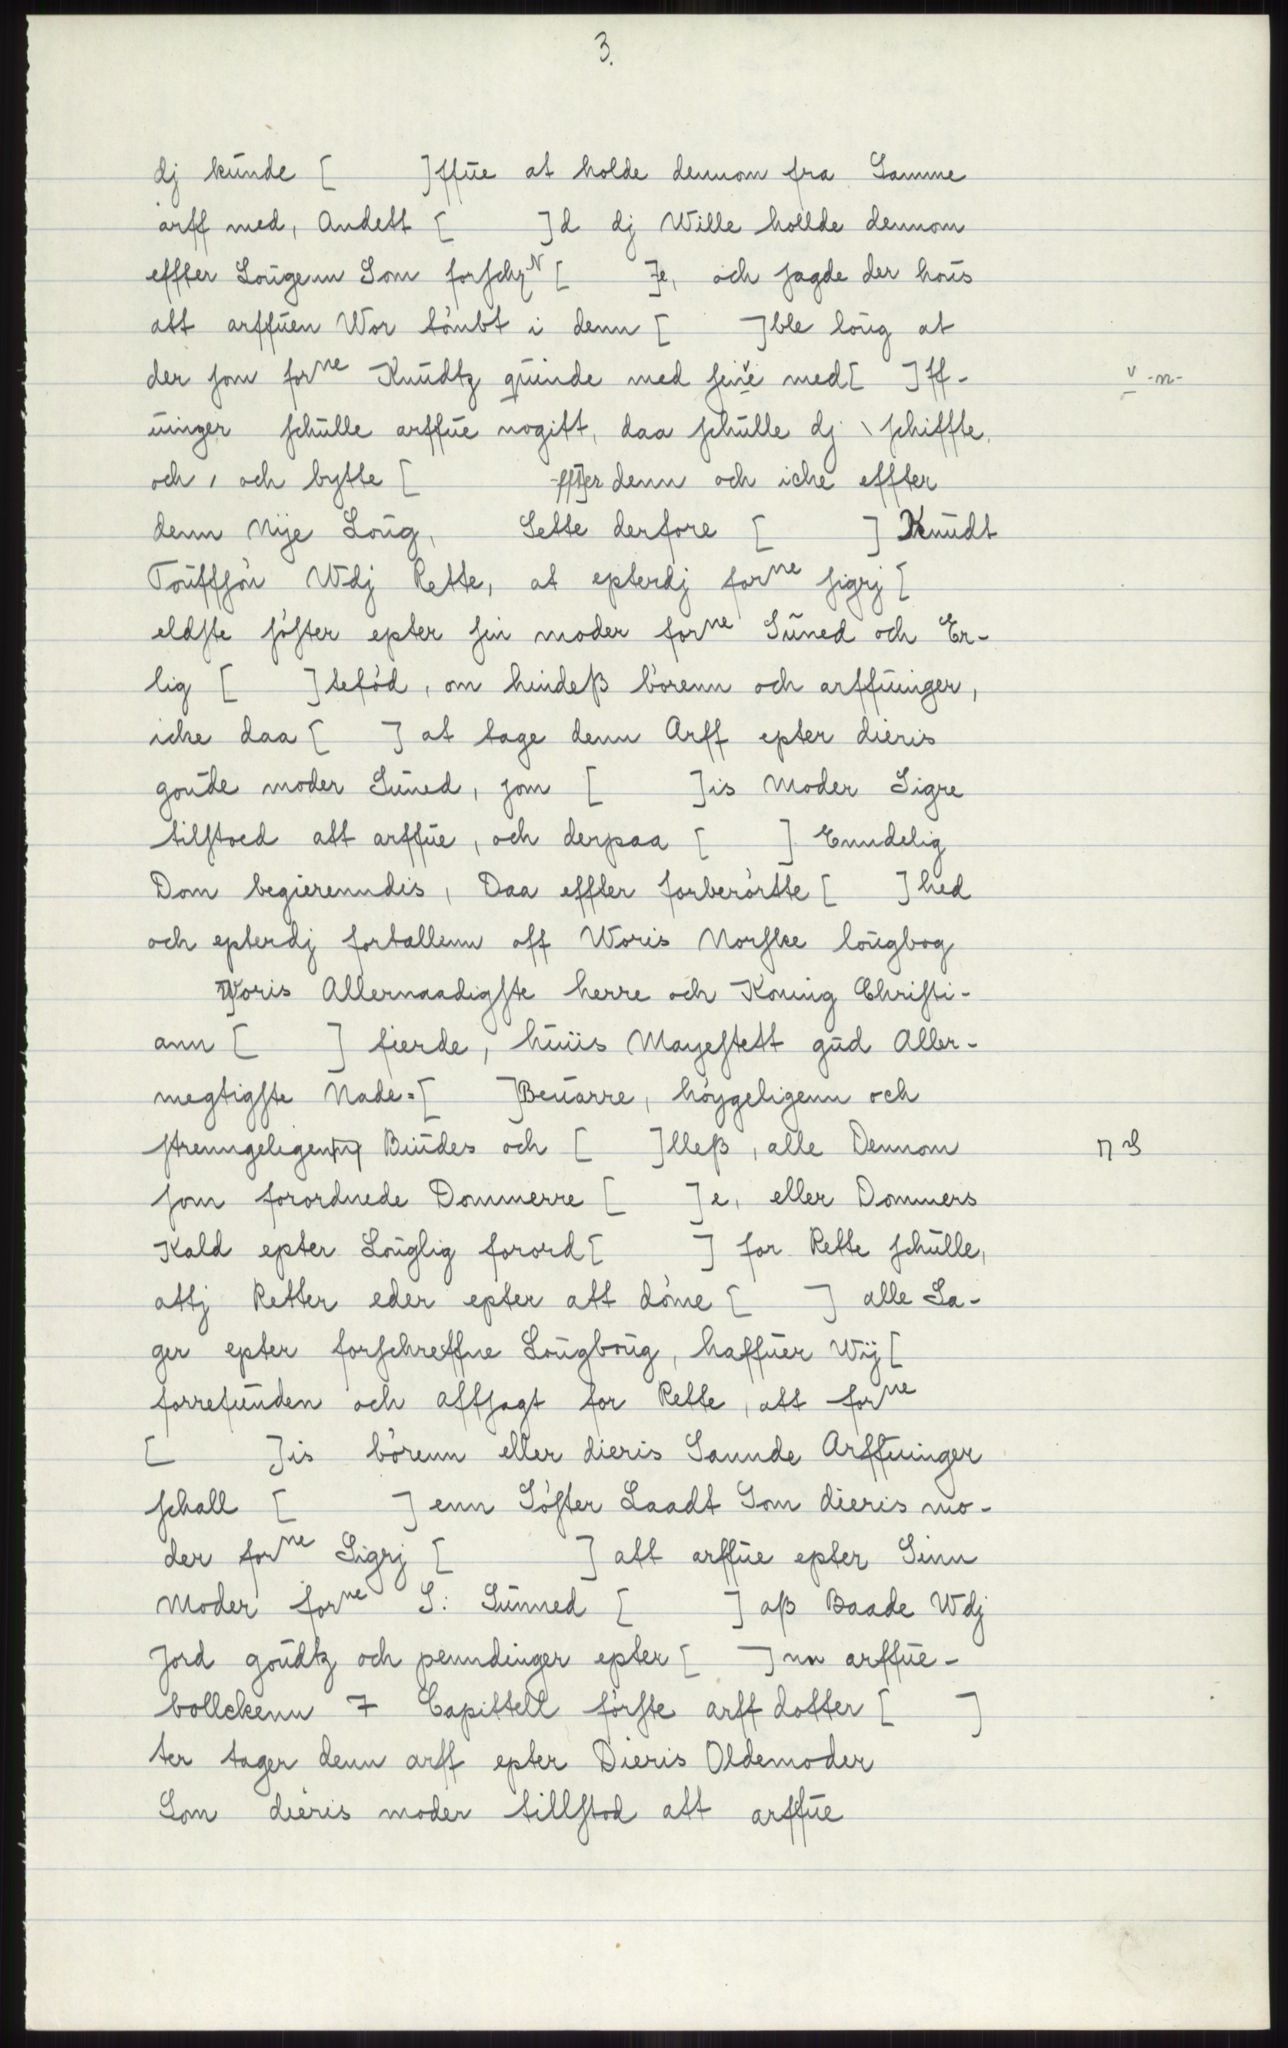 3.
dj kunde [ ]ffue at holde dennom fra Samme
arff med, Andett [ ]d dj Wille hollde dennom
effter Lougenn Som forschr [ ]e, och sagde der hous
att arffuen Wor tómbt i denn [ ]ble loug at
der som forne Knudtz quinde med sine med[ ]ff-
uinger schulle arffue nogitt, daa schulle dj \ schiffte,
och, och bytte [ ffT]er denn och icke effter
denn Nÿe Loug, Sette derfore [ ] Knudt
Touffsón Wdj Rette, at epterdj forne sigrj [
eldste sóster epter sin moder forne Suned och Er-
lig [ ]tefód, om hindeß bórenn och arffuinger,
icke daa [ ] at tage denn Arff epter dieris
goude moder Suned, som [ ]is Moder Sigre
tilstoed att arffue, och derpaa [ ] Enndelig
Dom begierenndis, Daa effter forberórtte [ ]hed
och epterdj fortallenn aff Woris Norske lougbog
W]oris Allernaadigste herre och Koning Christi-
ann [ ] fierde, huiis Mayestett gud Aller-
megtigste Nade=[ ]Beuarre, hóygeligenn och
strenngeligenn Biudes och [ ]lleß, alle Dennom
som forordnede Dommerre [ ]e, eller Dommers
Kald epter Louglig forord[ ] for Rette schulle,
attj Retter eder epter att dóme [ ] alle Sa-
ger epter forschreffne Lougboug, haffuer Wÿ [
forrefunden och affsagt for Rette, att forne
[ ]is bórenn eller dieris Sannde Arffuinger
schall [ ] enn Sóster Laadt Som dieris mo-
der forne Sigrj [ ] att arffue epter Sinn
Moder forne S: Sunned [ ] aß Baade Wdj
Jord goudtz och penndinger epter [ ]nn arffue-
bollckenn 7 Capittell fórste arff dotter [ ]
ter tager denn arff epter Dieris Oldemoder
Som dieris moder tillstod att arffue
v -n-